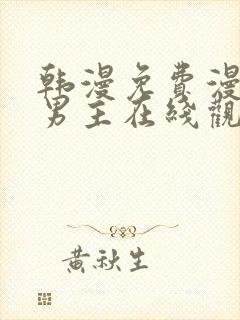 韩漫免費漫
男主在线觀
黄秋生